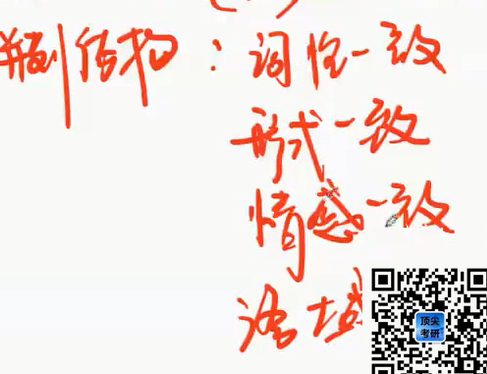 并列结构：词性一致
形式一致
情感一致
语域
顶尖
考研